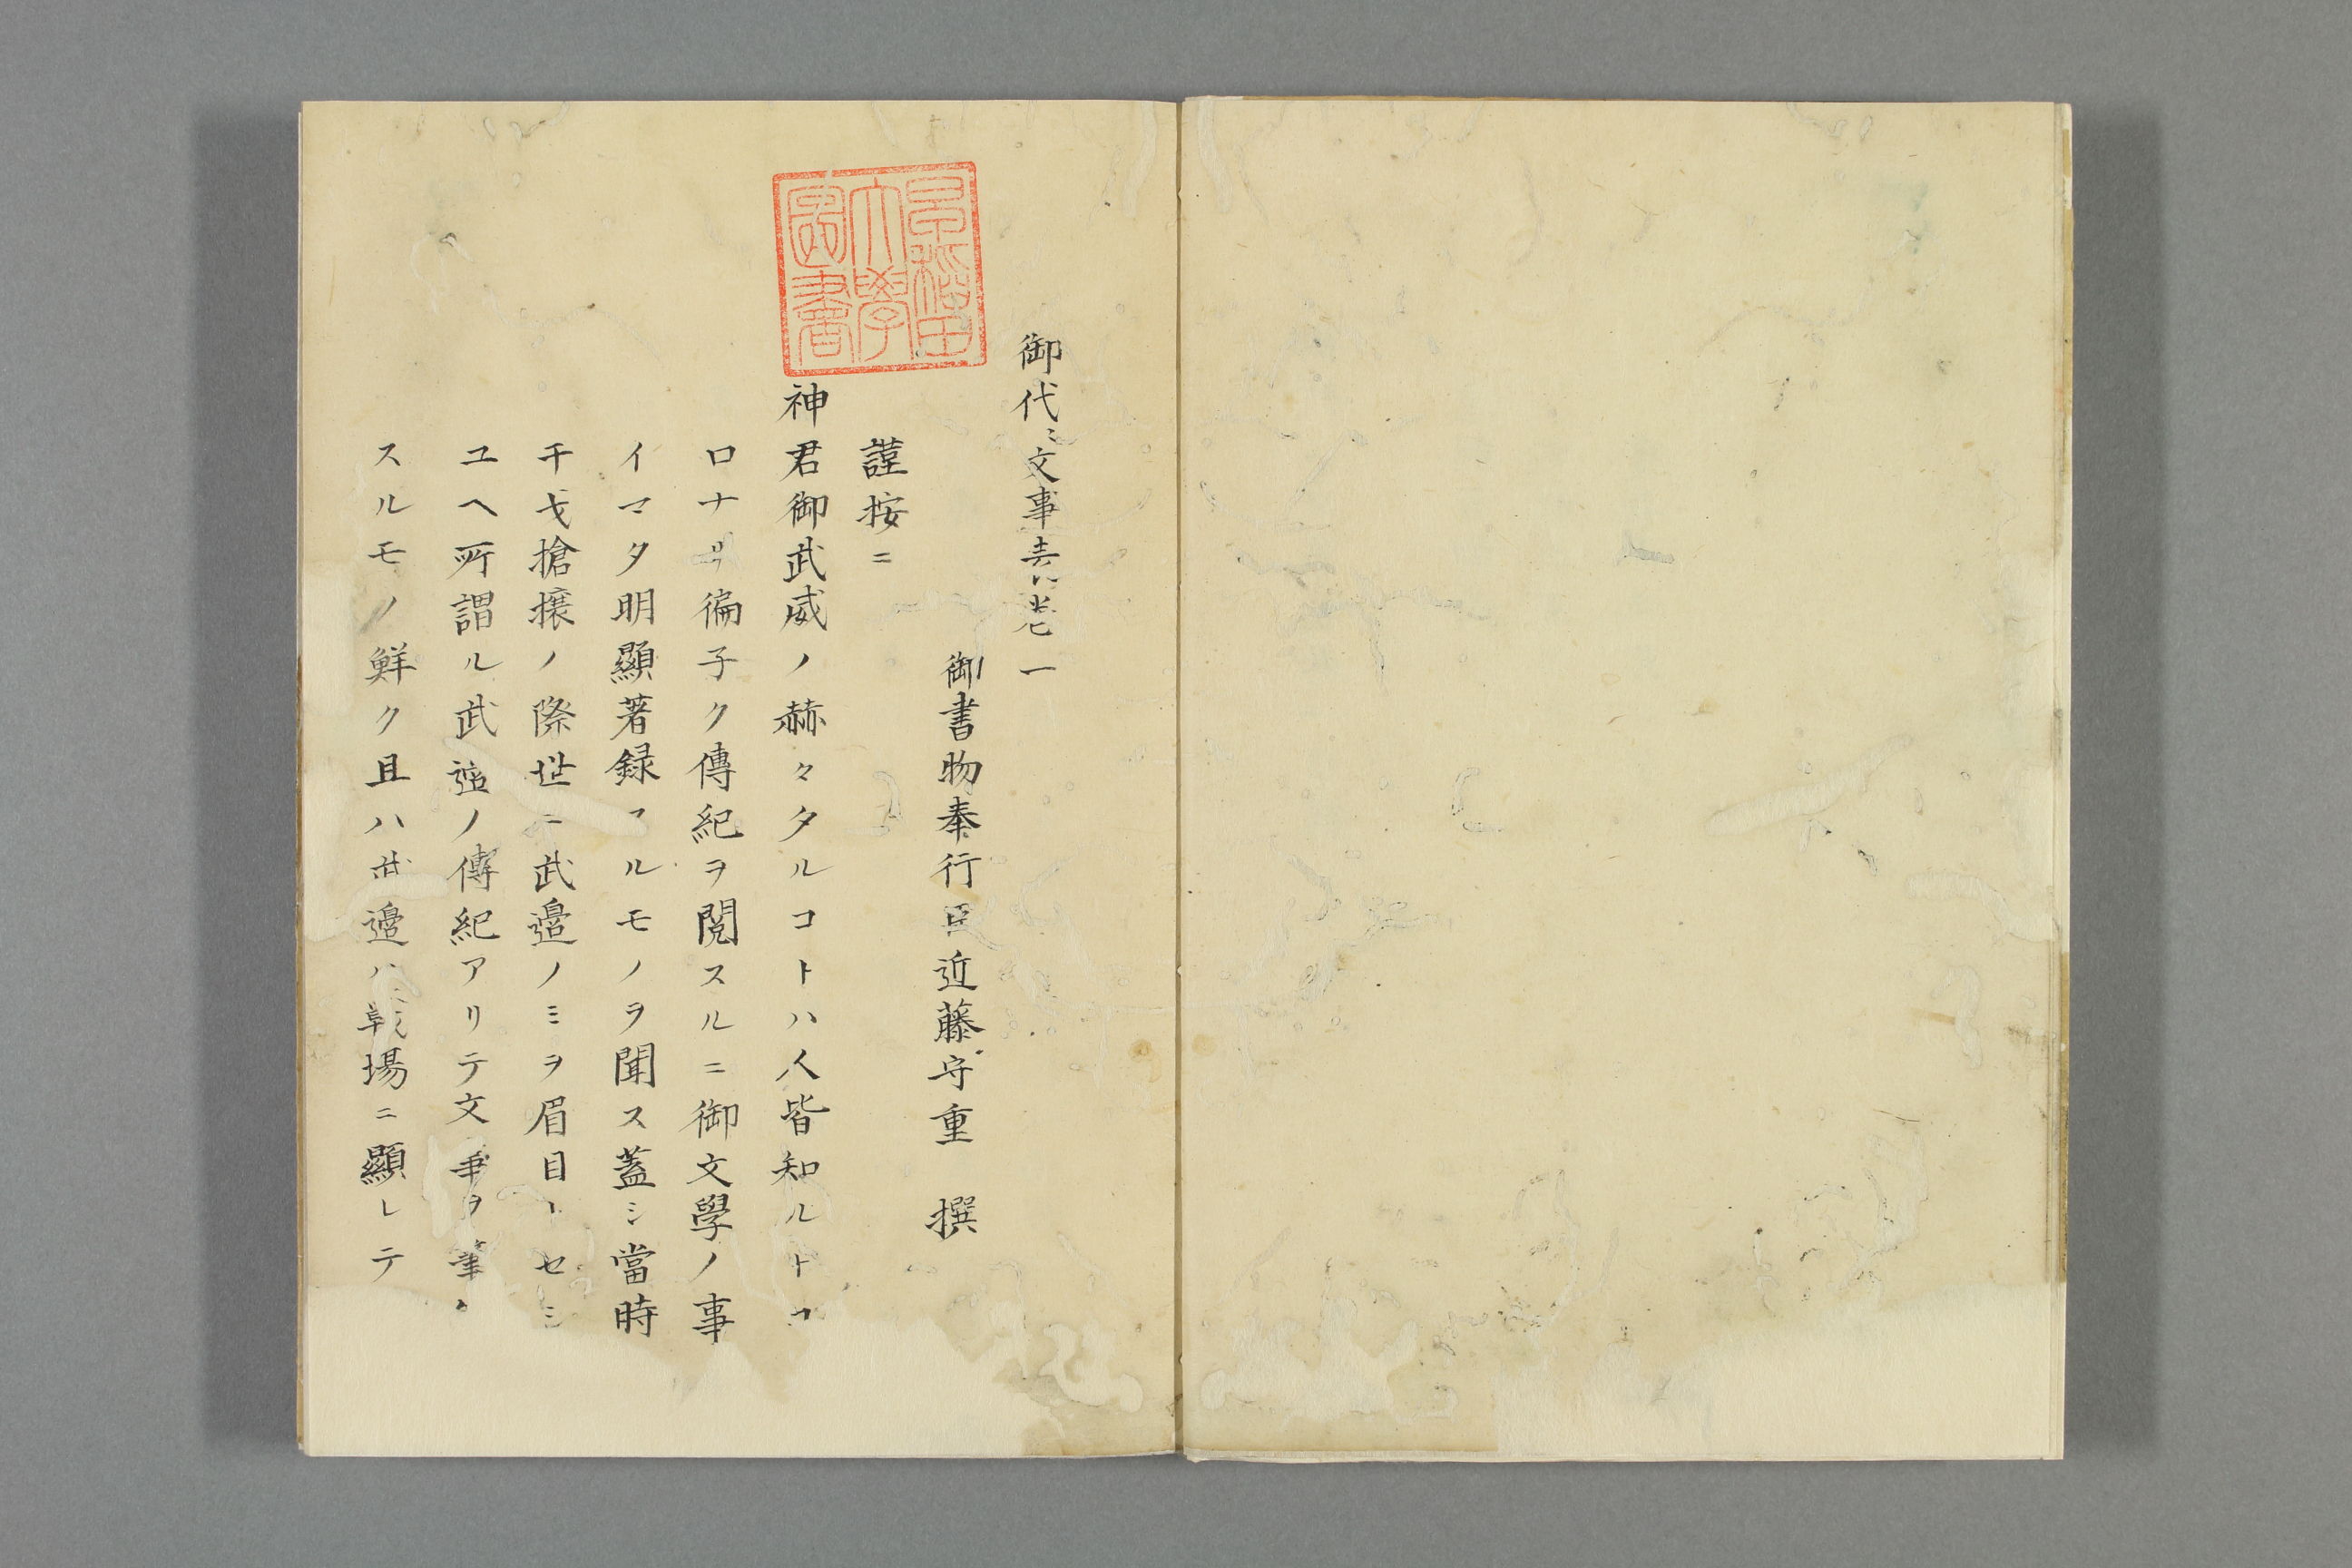 御代〻文事表卷一
御書物奉行臣近藤守重 撰
謹按ニ
神君御武威ノ赫々タルコトハ人皆知ルトコ
ロナリ徧子ク傳紀ヲ閲スルニ御文學ノ事
イマタ明顯著録スルモノヲ聞ス蓋シ當時
干戈搶攘ノ際世ニ武邉ノミヲ眉目トセシ
ユヘ所謂ル武邉ノ傳紀アリテ文事ヲ筆
スルモノ鮮ク且ハ武邉ハ戰場ニ顯レテ
早稻田大學圖書